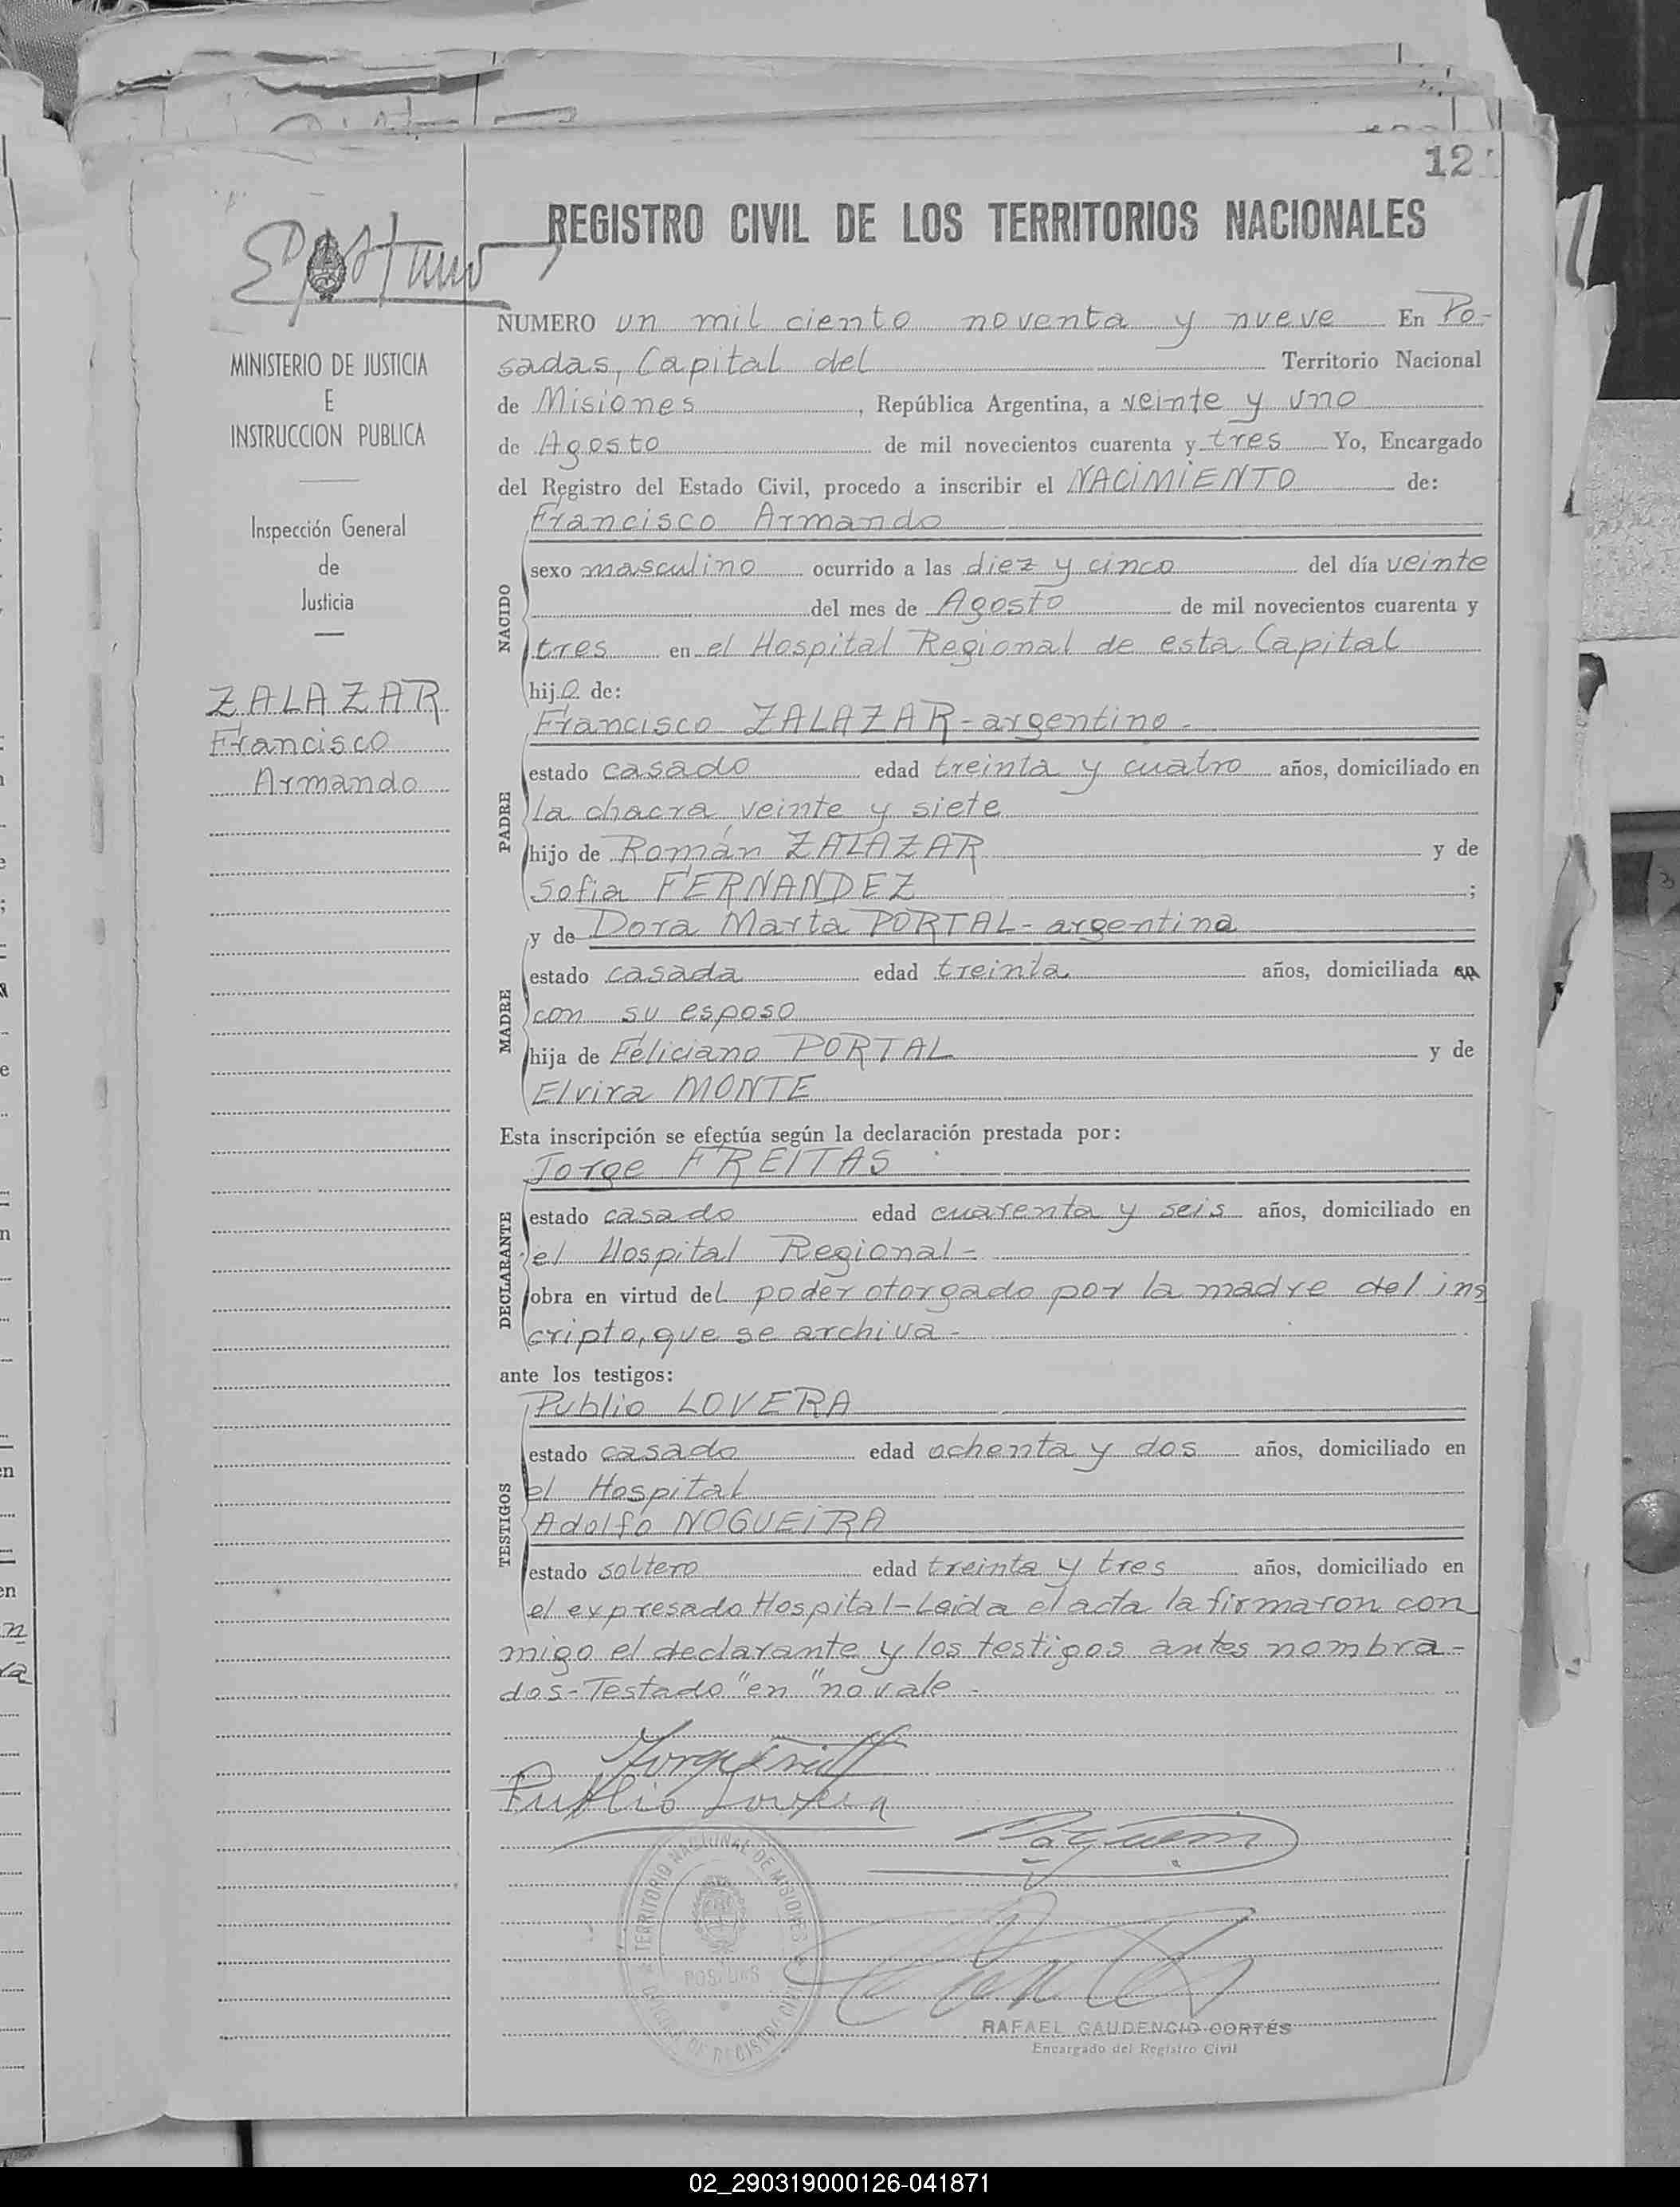 REGISTRO CIVIL DE LOS TERRITORIOS NACIONALES
MINISTERIO DE JUSTICIA
E
INSTRUCCION PUBLICA
Inspección General
de
Justicia
ZALAZAR
Francisco
Armando
NUMERO un mil ciento noventa y nueve En Po-
sadas, Capital del Territorio Nacional
de Misiones, República Argentina, a veinte y uno
de Agosto de mil novecientos cuarenta y tres Yo, Encargado
del Registro del Estado Civil, procedo a inscribir el NACIMIENTO de:
NACIDO
Francisco Armando
sexo masculino ocurrido a las diez y cinco del día veinte
del mes de Agosto de mil novecientos cuarenta y
tres en el Hospital Regional de esta Capital
hijo de:
PADRE
Francisco ZALAZAR-argentino-
estado casado edad treinta y cuatro años, domiciliado en
la chacra veinte y siete
hijo de Román ZALAZAR y de
Sofia FERNANDEZ;
MADRE
y de Dora Marta PORTAL-argentina
estado casada edad treinta años, domiciliada en
con su esposo
hija de Feliciano PORTAL y de
Elvira MONTE
Esta inscripción se efectúa según la declaración prestada por:
DECLARANTE
Jorge FREITAS
estado casado edad cuarenta y seis años, domiciliado en
el Hospital Regional-
obra en virtud del poder otorgado por la madre del ins
cripto, que se archiva-
ante los testigos:
TESTIGOS
Publio LOVERA
estado casado edad ochenta y dos años, domiciliado en
el Hospital
Adolfo NOGUEIRA
estado soltero edad treinta y tres años, domiciliado en
el expresado Hospital-Leida el acta la firmaron con
migo el declarante y los testigos antes nombra-
dos-Testado "en" no vale-
Publio Lovera
TERRITORIO NACIONAL DE MISIONES
POSADAS
OFICINA DE REGISTRO CIVIL
RAFAEL GAUDENCIO CORTÉS
Encargado del Registro Civil
02_290319000126-041871